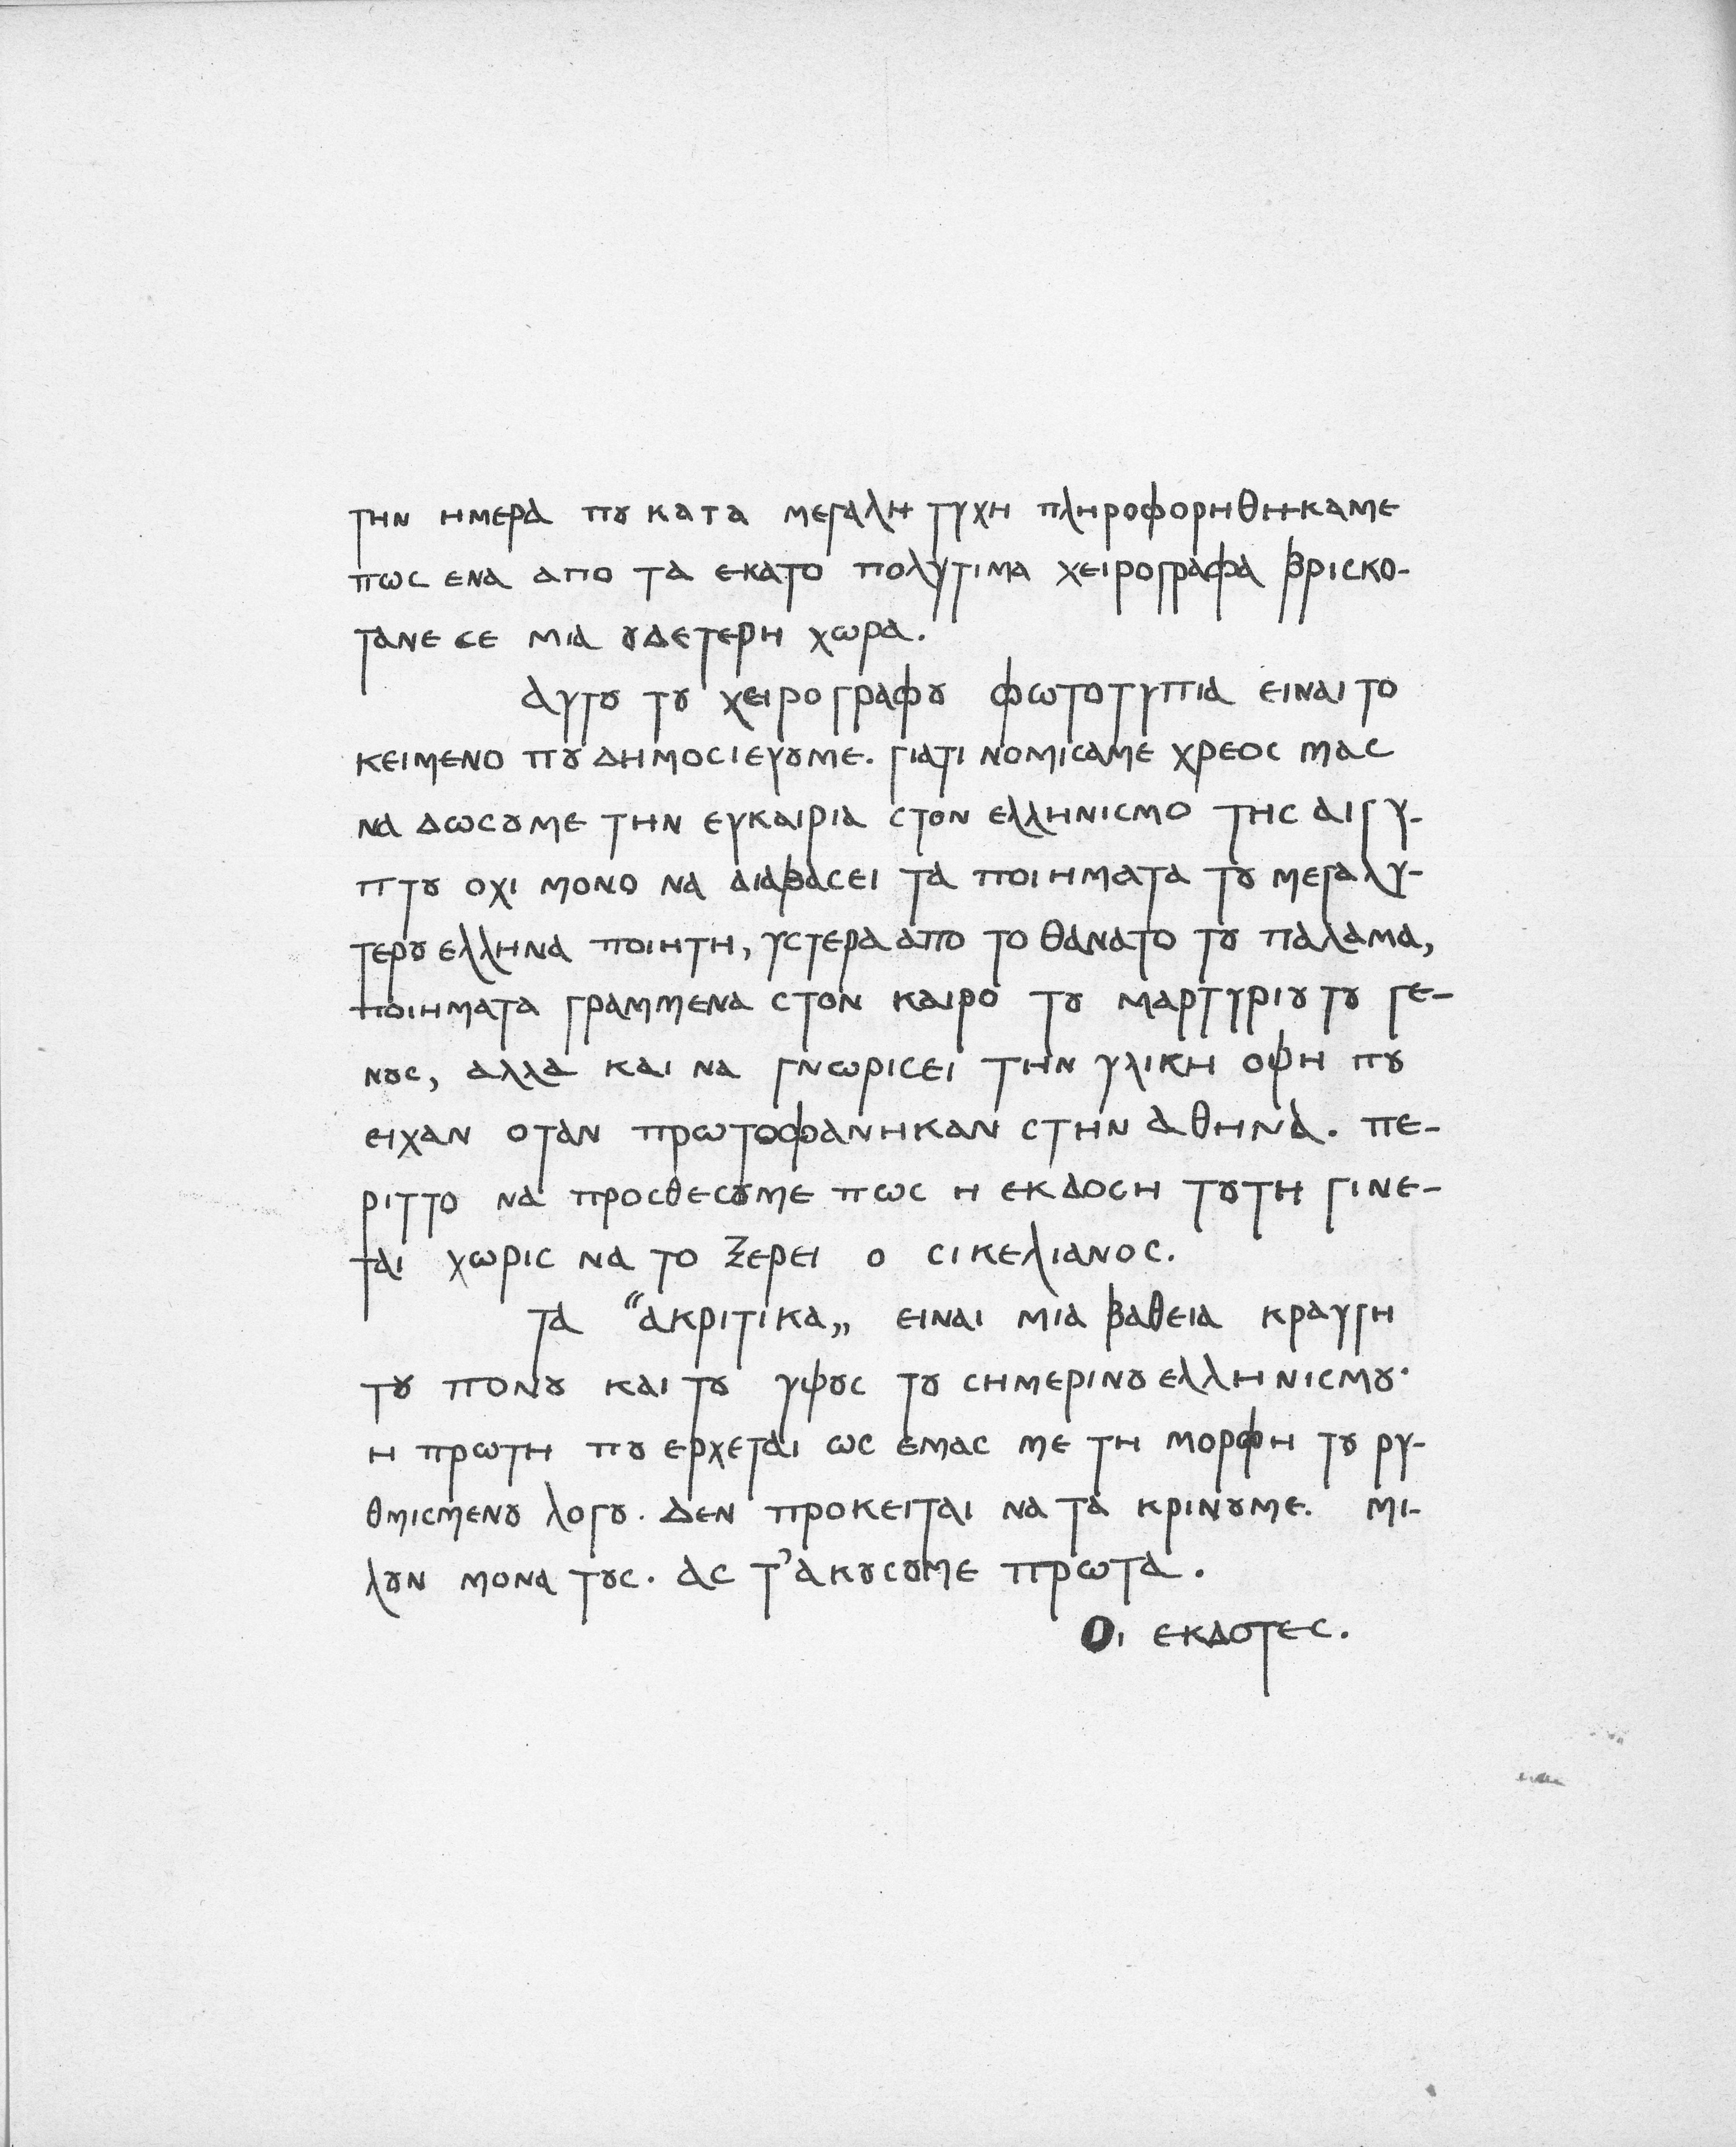 την ημερα πȣ κατα μεγαλη τυχη πληροφορηθηκαμε
πως ενα απο τα εκατο πολυτιμα χειρογραφα βρισκο-
τανε σε μια ȣδετερη χωρα.
Αυτȣ τȣ χειρογραφȣ φωτοτυπια ειναι το
κειμενο πȣ δημοσιευȣμε. γιατι νομισαμε χρεος μας
να δωσȣμε την ευκαιρια στον ελληνισμο της αιγυ-
πτȣ οχι μονο να διαβασει τα ποιηματα τȣ μεγαλυ-
τερȣ ελληνα ποιητη, υστερα απο το θανατο τȣ παλαμα,
ποιηματα γραμμενα στον καιρο τȣ μαρτυριȣ τȣ γε-
νȣς, αλλα και να γνωρισει την υλικη οψη πȣ
ειχαν οταν πρωτοφανηκαν στην αθηνα. πε-
ριττο να προσθεσȣμε πως η εκδοση τȣτη γινε-
ται χωρις να το ξερει ο σικελιανος.
τα “ακριτικα„ ειναι μια βαθεια κραυγη
τȣ πονȣ και τȣ υψȣς τȣ σημερινȣ ελληνισμȣ·
η πρωτη πȣ ερχεται ως εμας με τη μορφη τȣ ρυ-
θμισμενȣ λογȣ. Δεν προκειται να τα κρινȣμε. μι-
λȣν μονα τȣς. ας τ’ακȣσȣμε πρωτα.
Οι εκδοτες.